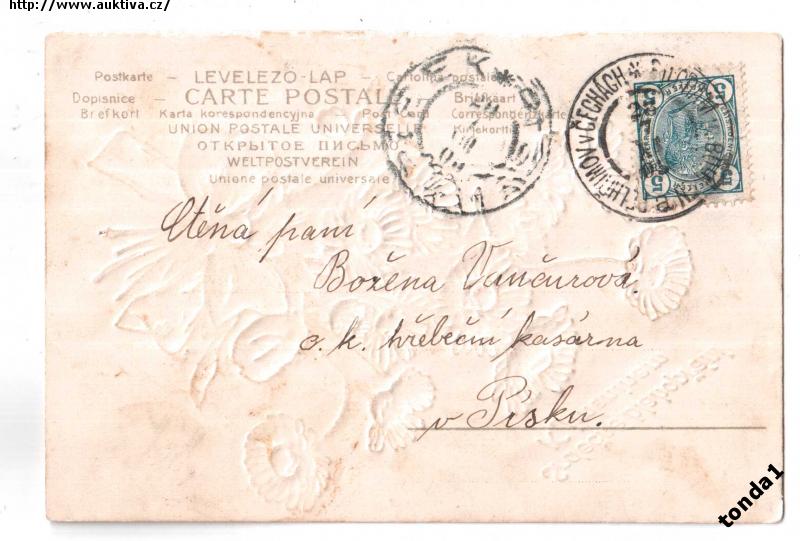 http://www.auktiva.cz/
Postkarte – LEVELEZŐ-LAP – Cartolina postale
Dopisnice – CARTE POSTALE – Briefkaart
Brefkort Karta korespondencyjna – Post Card Correspondenzkarte
UNION POSTALE UNIVERSELLE Kirjekortti
ОТКРЫТОЕ ПИСЬМО
WELTPOSTVEREIN
Unione postale universale
PÍSEK
PELHŘIMOV v ČECHÁCH
5 5
5 5
Ctěná paní
Božena Vančurová
c. k. hřebeční kasárna
v Písku.
tonda1